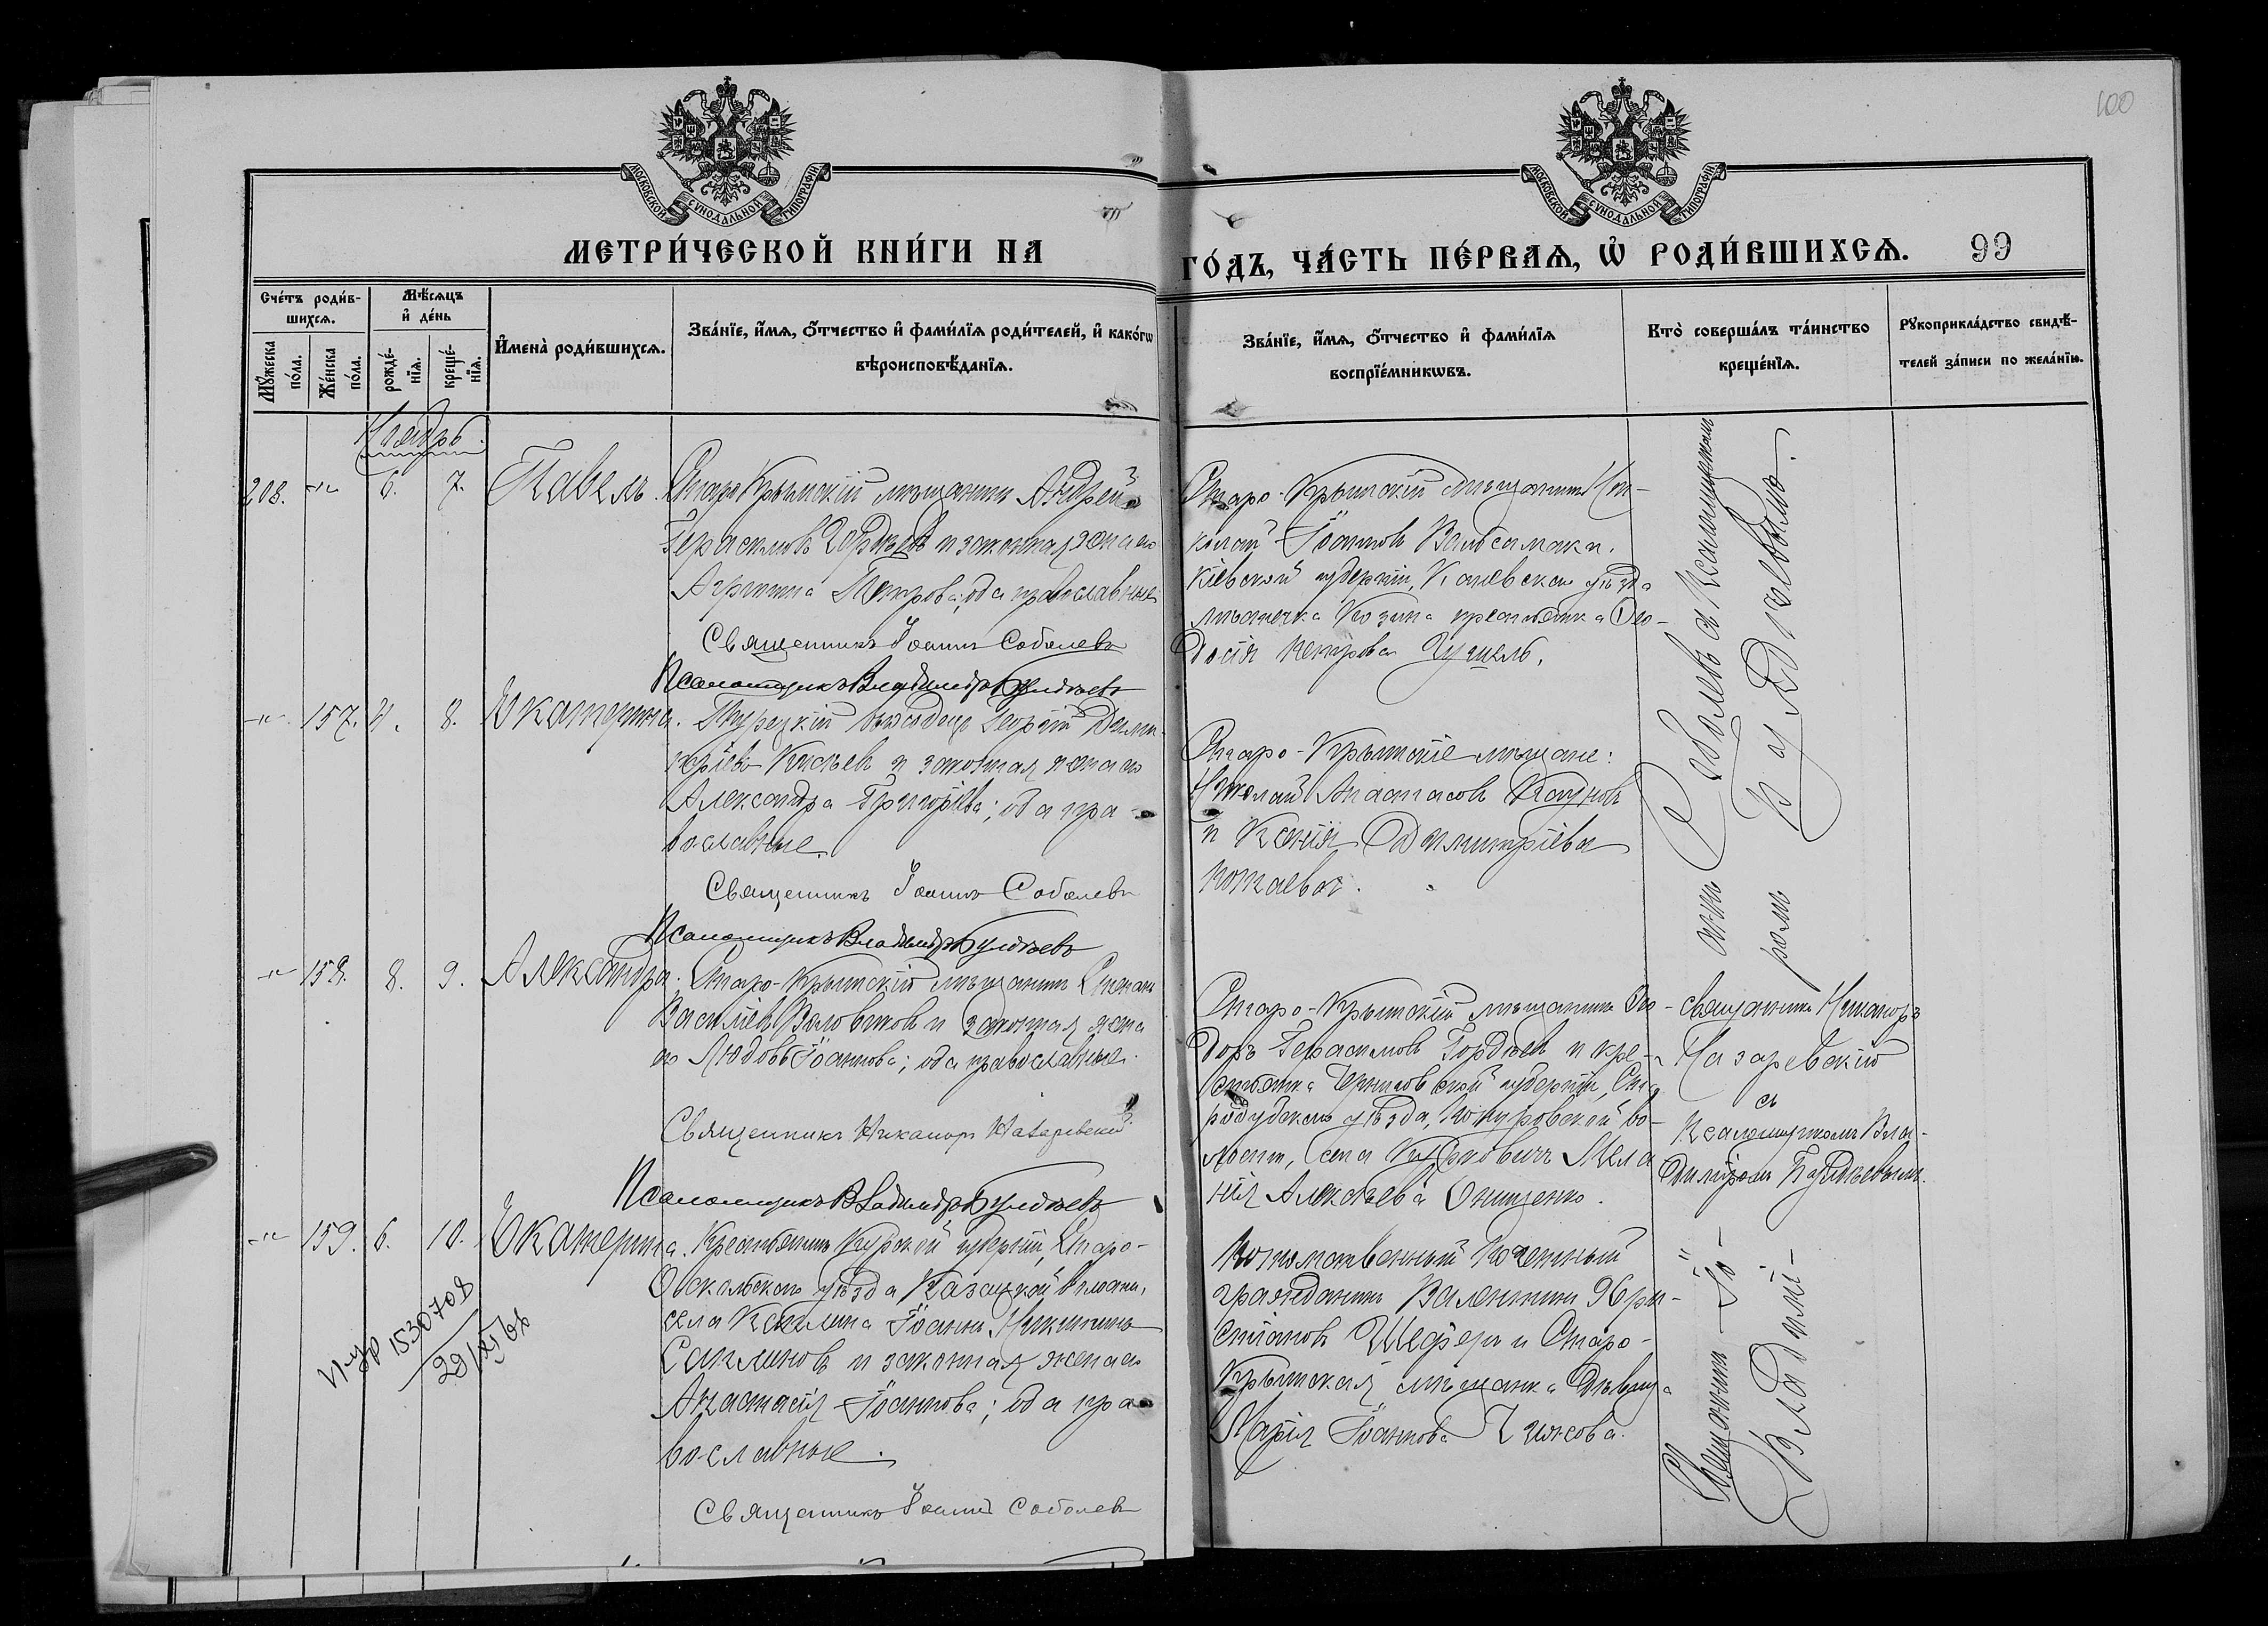 100
МОСКОВСКОЙ СѴНОДАЛЬНОЙ ТИПОГРАФІИ
МОСКОВСКОЙ СѴНОДАЛЬНОЙ ТИПОГРАФІИ
МЕТРИ́ЧЕСКОЙ КНИ́ГИ НА ГО́ДЪ, ЧА́СТЬ ПЕ́РВАѦ, Ѡ҆ РОДИ́ВШИХСѦ. 99
Сче́тъ роди́в-
шихсѧ.
Мꙋ́жеска по́ла.
Же́нска по́ла.
Мѣ́сѧцъ
и҆ де́нь
рожде́-
нїѧ.
креще́-
нїѧ.
И҆мена̀ роди́вшихсѧ.
Зва́нїе, и҆́мѧ, ѻ҆́тчество и҆ фами́лїѧ роди́телей, и҆ како́гѡ
вѣроисповѣ́данїѧ.
Зва́нїе, и҆́мѧ, ѻ҆́тчество и҆ фами́лїѧ
воспрїе́мникѡвъ.
Кто̀ соверша́лъ та́инство
креще́нїѧ.
Рꙋкоприкла́дство свидѣ́-
телей за́писи по жела́нїю.
Ноябрь.
208. -"- 6. 7. Павелъ. Старо Крымскій мѣщанинъ Андрей
Герасимовъ Гордѣевъ и законная жена его
Агрипина Петрова; оба православные
Священникъ Іоаннъ Соболевъ
Псаломщикъ Владиміръ Булдѣевъ
Старо-Крымскій мѣщанинъ Ни-
колай Іоанновъ Вальсамаки.
Кіевской губерніи, Каневскаго уѣзда
мѣстечка Козина крестьянка Ѳео-
досія Петрова
-"- 157. 8. Екатерина. Турецкій Георгій Дими-
тріевъ и законная жена его
Александра Григорьева; оба пра-
вославные.
Священникъ Іоаннъ Соболевъ
Псаломщикъ Владиміръ Булдѣевъ
Старо-Крымскіе мѣщане:
Николай Анастасовъ
и Ксенія Димитріева
-"- 158. 8. 9. Александра. Старо-Крымскій мѣщанинъ Стефанъ
Василіевъ и законная жена
его Любовь Іоаннова; оба православные.
Священникъ Никаноръ Назаревскій
Псаломщикъ Владиміръ Булдѣевъ
Старо-Крымскій мѣщанинъ Ѳео-
доръ Герасимовъ Гордѣевъ и кре-
стьянка Черниговской губерніи, Ста-
родубскаго уѣзда, во-
лости, села Мела-
нія Алексѣева Онищенко.
Священникъ Никаноръ
Назаревскій
съ
Псаломщикомъ Вла-
диміромъ Булдѣевымъ.
-"- 159. 6. 10. Екатерина. Крестьянинъ Курской губерніи, Старо-
Оскольскаго уѣзда Казацкой волости,
села Іоаннъ Никитинъ
и законная жена его
Анастасія Іоаннова; оба пра-
вославные.
Священникъ Іоаннъ Соболевъ
Потомственный Почетный
гражданинъ Валентинъ Хри-
стіановъ Шеферъ и Старо-
Крымская мѣщанка дѣвица
Марія Іоаннова
Священникъ Іо-
анн Соболевъ съ Псаломщикомъ
Владимі-
ромъ Булдѣевымъ.